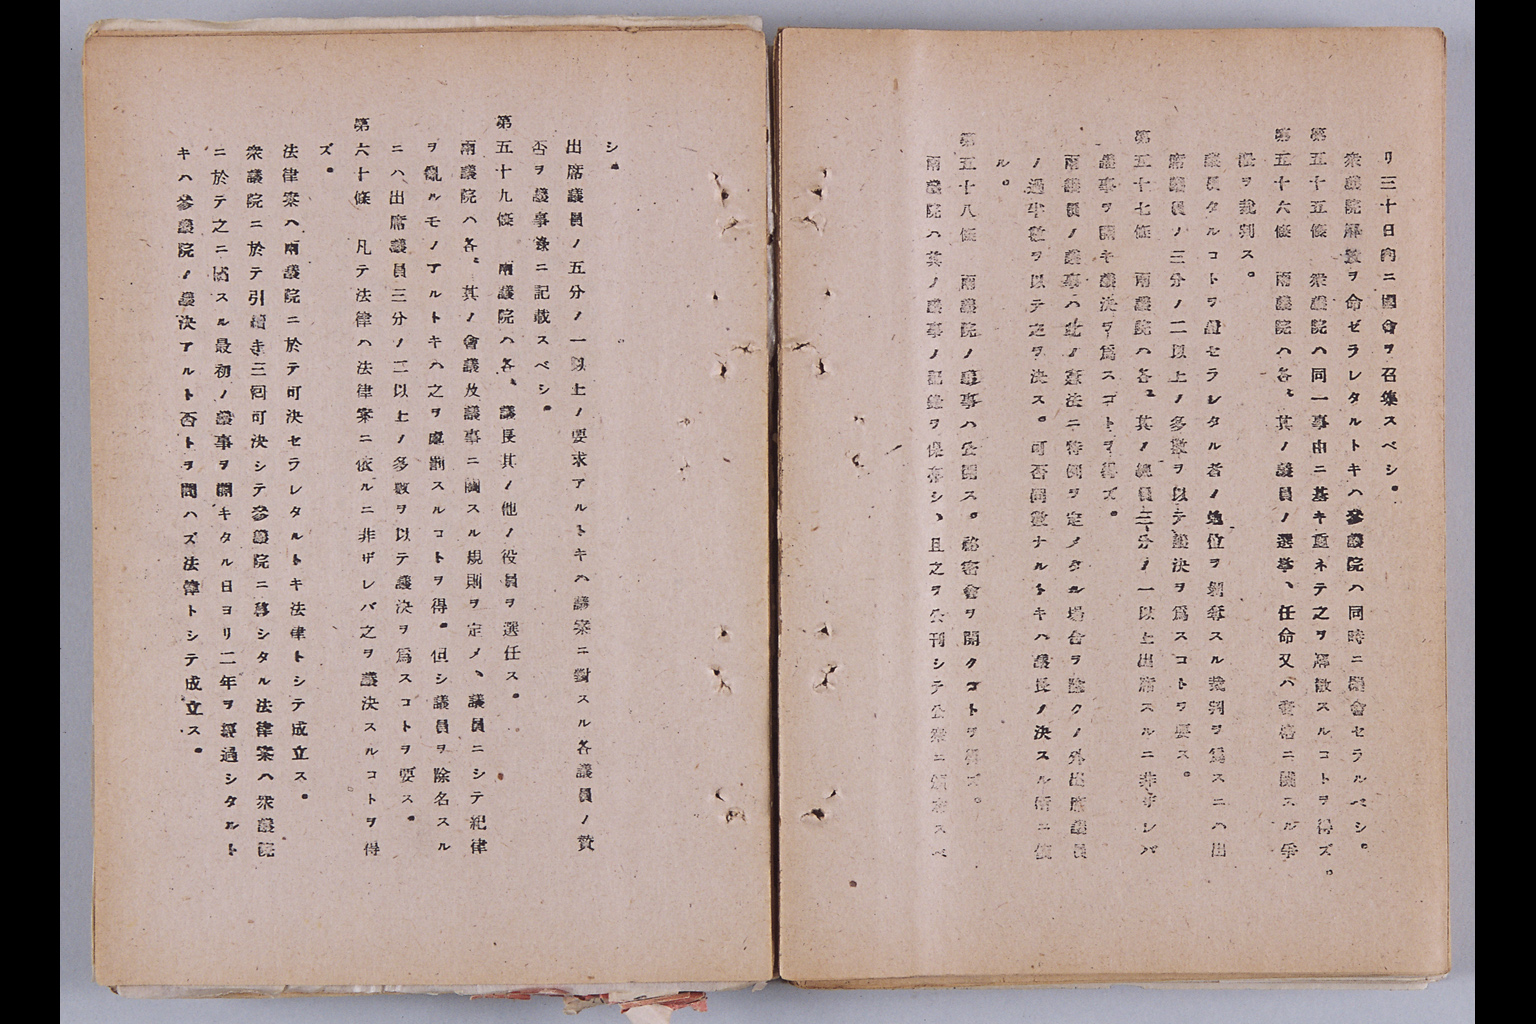 リ三十日內ニ國會ヲ召集スベシ。
衆議院解散ヲ命ゼラレタルトキハ參議院ハ同時ニ閉會セラルベシ。
第五十五條　衆議院ハ同一事由ニ基キ重ネテ之ヲ解散スルコトヲ得ズ。
第五十六條　兩議院ハ各〻其ノ議員ノ選擧、任命又ハ資格ニ關スル爭
訟ヲ裁判ス。
議員タルコトヲ證セラレタル者ノ地位ヲ剝奪スル裁判ヲ爲スニハ出
席議員ノ三分ノ二以上ノ多數ヲ以テ議決ヲ爲スコトヲ要ス。
第五十七條　兩議院ハ各〻其ノ總員三分ノ一以上出席スルニ非ザレバ
議事ヲ開キ議決ヲ爲スコトヲ得ズ。
兩議院ノ議事ハ此ノ憲法ニ特例ヲ定メタル場合ヲ除クノ外出席議員
ノ過半數ヲ以テ之ヲ決ス。可否同數ナルトキハ議長ノ決スル所ニ依
ル。
第五十八條　兩議院ノ議事ハ公開ス。祕密會ヲ開クコトヲ得ズ。
兩議院ハ其ノ議事ノ記錄ヲ保存シ、且之ヲ公刊シテ公衆ニ頒布スベ
シ。
出席議員ノ五分ノ一以上ノ要求アルトキハ議案ニ對スル各議員ノ贊
否ヲ議事錄ニ記載スベシ。
第五十九條　兩議院ハ各〻議長其ノ他ノ役員ヲ選任ス。
兩議院ハ各〻其ノ會議及議事ニ關スル規則ヲ定メ、議員ニシテ紀律
ヲ亂ルモノアルトキハ之ヲ處罰スルコトヲ得。但シ議員ヲ除名スル
ニハ出席議員三分ノ二以上ノ多數ヲ以テ議決ヲ爲スコトヲ要ス。
第六十條　凡テ法律ハ法律案ニ依ルニ非ザレバ之ヲ議決スルコトヲ得
ズ。
法律案ハ兩議院ニ於テ可決セラレタルトキ法律トシテ成立ス。
衆議院ニ於テ引續キ三囘可決シテ參議院ニ移シタル法律案ハ衆議院
ニ於テ之ニ關スル最初ノ議事ヲ開キタル日ヨリ二年ヲ經過シタルト
キハ參議院ノ議決アルト否トヲ問ハズ法律トシテ成立ス。